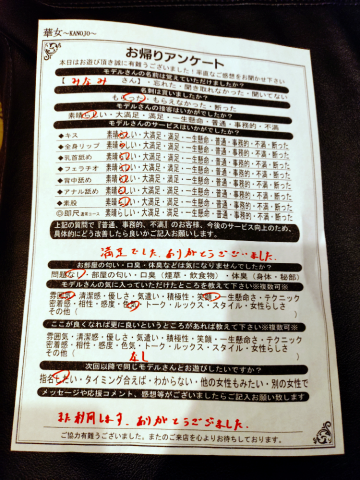 華女～KANOJO～
お帰りアンケート
本日はお遊び頂き誠に有難うございました！率直なご感想をお聞かせ下さい
モデルさんの名前は覚えていただけましたか？
【みなみ さん】・忘れた・聞き取れなかった・聞いてない
名刺は貰いましたか？
もらった・もらえなかった・断った
モデルさんの接客はいかがでしたか？
素晴らしい・大満足・満足・一生懸命・普通・事務的・不満
モデルさんのサービスはいかがでしたか？
◆キス 素晴らしい・大満足・満足・一生懸命・普通・事務的・不満・断った
◆全身リップ 素晴らしい・大満足・満足・一生懸命・普通・事務的・不満・断った
◆乳首舐め 素晴らしい・大満足・満足・一生懸命・普通・事務的・不満・断った
◆フェラチオ 素晴らしい・大満足・満足・一生懸命・普通・事務的・不満・断った
◆背中舐め 素晴らしい・大満足・満足・一生懸命・普通・事務的・不満・断った
◆アナル舐め 素晴らしい・大満足・満足・一生懸命・普通・事務的・不満・断った
◆素股 素晴らしい・大満足・満足・一生懸命・普通・事務的・不満・断った
◎即尺 素晴らしい・大満足・満足・一生懸命・普通・事務的・不満・断った
上記の質問で『普通、事務的、不満』のお客様、今後のサービス向上のため、
具体的にどう改善したら良いかご記入お願いします。
満足でした。ありがとうございました。
お部屋の匂い・口臭・体臭などは気になりませんでしたか？
問題なし・部屋の匂い・口臭（煙草・飲食物）・体臭（身体・秘部）
モデルさんの気に入っていただけたところを教えて下さい※複数可※
雰囲気・清潔感・優しさ・気遣い・積極性・笑顔・一生懸命さ・テクニック
密着感・相性・感度・色気・トーク・ルックス・スタイル・女性らしさ
その他（ ）
ここが良くなれば更に良いというところがあれば教えて下さい※複数可※
雰囲気・清潔感・優しさ・気遣い・積極性・笑顔・一生懸命さ・テクニック
密着感・相性・感度・色気・トーク・ルックス・スタイル・女性らしさ
その他（ なし ）
次回以降で同じモデルさんとお遊びしたいですか？
指名したい・タイミング合えば・わからない・他の女性もみたい・別の女性で
メッセージや応援コメント、感想等がございましたらご記入お願い致します
また利用します。ありがとうございました。
ご協力有難うございました。またのご来店を心よりお待ちしております。